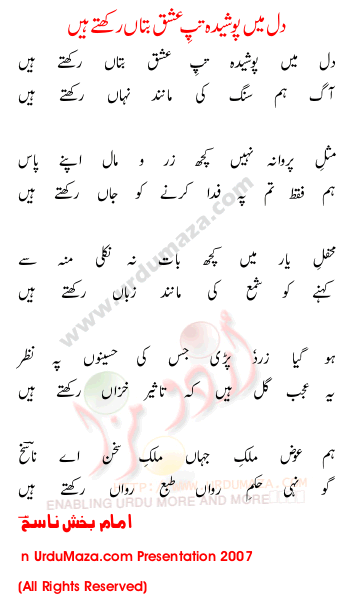 دل میں پوشیدہ تپِ عشق بتاں رکھتے ہیں
دل میں پوشیدہ تپِ عشق بتاں رکھتے ہیں
آگ ہم سنگ کی مانند نہاں رکھتے ہیں
مثلِ پروانہ نہیں کچھ زر و مال اپنے پاس
ہم فقط تم پہ فدا کرنے کو جاں رکھتے ہیں
محفلِ یار میں کچھ بات نہ نکلی منہ سے
کہنے کو شمع کی مانند زباں رکھتے ہیں
ہو گیا زردؔ پڑی جس کی حسینوں پہ نظر
یہ عجب گل ہیں کہ تاثیر خزاں رکھتے ہیں
ہم عوض ملکِ جہاں ملکِ سخن اے ناسخؔ
گو نہی حکمِ رواں طبع رواں رکھتے ہیں
امام بخش ناسخؔ
n UrduMaza.com Presentation 2007
(All Rights Reserved)
www.urdumaza.com
اردو مزا
HTTP://WWW.URDUMAZA.COM
ENABLING URDU MORE AND MORE